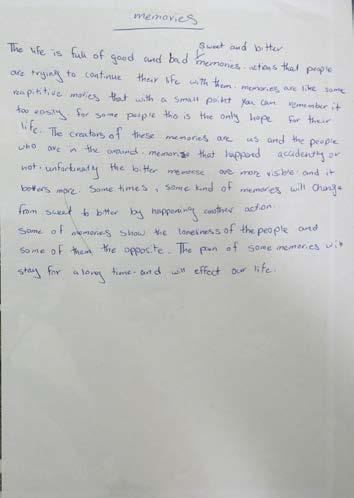 memories
The life is full of good and bad sweet and bitter memories. actions that people
are trying to continue their life with them. memories are like some
repititive movies that with a small point you can remember it
too easily. for some people this is the only hope for their
life. The creators of these memories are us and the people
who are in the around. memories that happend accidently or
not. unfortunatly the bitter are more visible and it
bothers more. Some times, some kind of memories will change
from sweet to bitter by happening another action.
some of memories show the loneliness of the people and
some of them the opposite. The pain of some memories will
stay for a long time. and will effect our life.